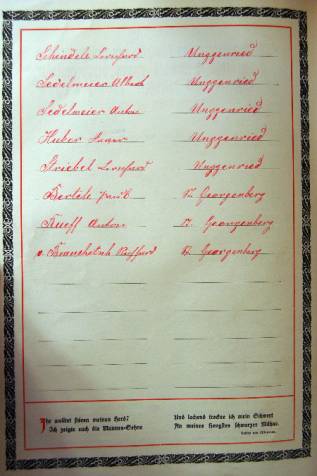 Schindele Bernhard Unggenried
Sedelmeier Albert Unggenried
Sedelmeier Anton Unggenried
Huber Unggenried
Striebel Bernhard Unggenried
Bertele St. Georgenberg
Rueff Anton St. Georgenberg
St. Georgenberg
Ihr wolltet stören meinen Herd?
Ich zeigte euch die Mannes-Wehre
Und lachend trockne ich mein Schwert
An meines Hengstes schwarzer Mähne.